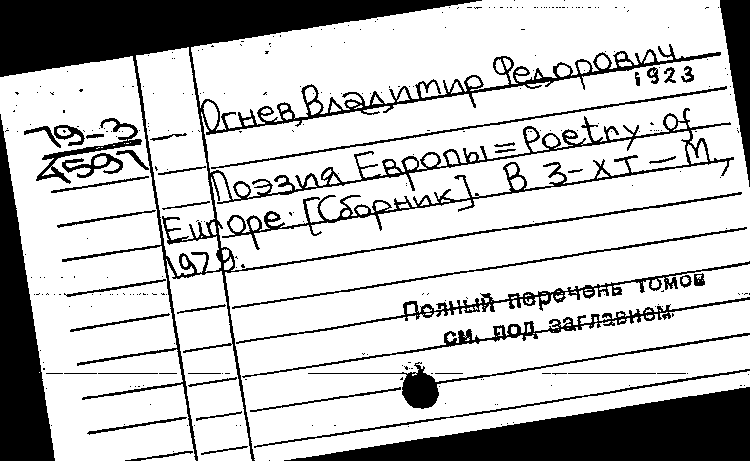 Огнев, Владимир Федорович.
1923
79-3
4597
Поэзия Европы = Poetry of
Europe. [Сборник]. В 3-х т – М.,
1979.
Полный перечень томов
см. под заглавием